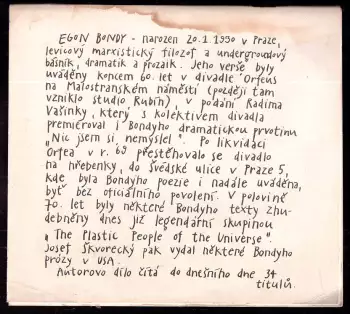 EGON BONDY - narozen 20.1.1930 v Praze,
levicový marxistický filozof a undergroundový
básník, dramatik a prozaik. Jeho verše byly
uváděny koncem 60. let v divadle Orfeus
na Malostranském náměstí (později tam
vzniklo studio Rubín), v podání Radima
Vašinky, který s kolektivem divadla
premiéroval i Bondyho dramatickou prvotinu
„Nic jsem si nemyslel". Po likvidaci
Orfea v r. 69 přestěhovalo se divadlo
na hřebenky, do Švédské ulice v Praze 5,
kde byla Bondyho poezie i nadále uváděna,
byť bez oficiálního povolení. V polovině
70. let byly některé Bondyho texty zhu-
debněny dnes již legendární skupinou
„The Plastic People of the Universe".
Josef Škvorecký pak vydal některé Bondyho
prózy v USA.
Autorovo dílo čítá do dnešního dne 34
titulů.